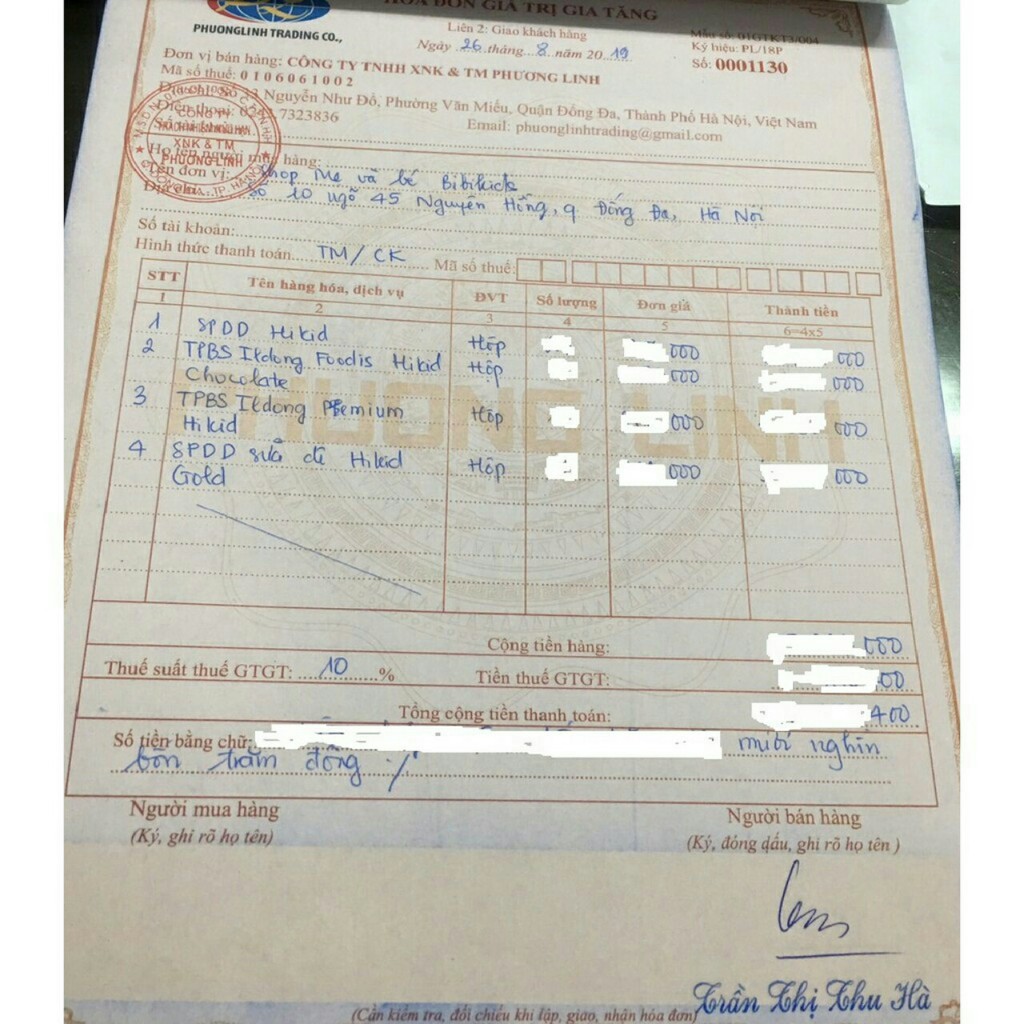 HÓA ĐƠN GIÁ TRỊ GIA TĂNG
PHUONGLINH TRADING CO.,
Liên 2: Giao khách hàng
Ngày 26 tháng 8 năm 2019
Mẫu số: 01GTKT3/004
Ký hiệu: PL/18P
Số: 0001130
Đơn vị bán hàng: CÔNG TY TNHH XNK & TM PHƯƠNG LINH
Mã số thuế: 0106061002
Nguyễn Như Đổ, Phường Văn Miếu, Quận Đống Đa, Thành Phố Hà Nội, Việt Nam
Điện thoại: 7323836
Email: phuonglinhtrading@gmail.com
CÔNG TY
TRÁCH NHIỆM HỮU HẠN
XNK & TM
PHƯƠNG LINH
Họ tên người mua hàng:
Tên đơn vị: Shop Mẹ và bé Bibikick
Địa chỉ: Số 10 ngõ 45 Nguyên Hồng, q Đống Đa, Hà Nội
Số tài khoản:
Hình thức thanh toán: TM/CK Mã số thuế:
STT Tên hàng hóa, dịch vụ ĐVT Số lượng Đơn giá Thành tiền
1 2 3 4 5 6=4x5
1 SPDD Hikid Hộp 000 000
2 TPBS Ildong Foodis Hikid Hộp 000 000
Chocolate
3 TPBS Ildong Premium Hộp 000 000
Hikid
4 SPDD sữa dê Hikid Hộp 000 000
Gold
PHUONG LINH
Cộng tiền hàng: 000
Thuế suất thuế GTGT: 10 % Tiền thuế GTGT: 00
Tổng cộng tiền thanh toán: 400
Số tiền bằng chữ: mươi nghìn
bốn trăm đồng ./.
Người mua hàng Người bán hàng
(Ký, ghi rõ họ tên) (Ký, đóng dấu, ghi rõ họ tên)
Trần Thị Thu Hà
(Cần kiểm tra, đối chiếu khi lập, giao, nhận hóa đơn)